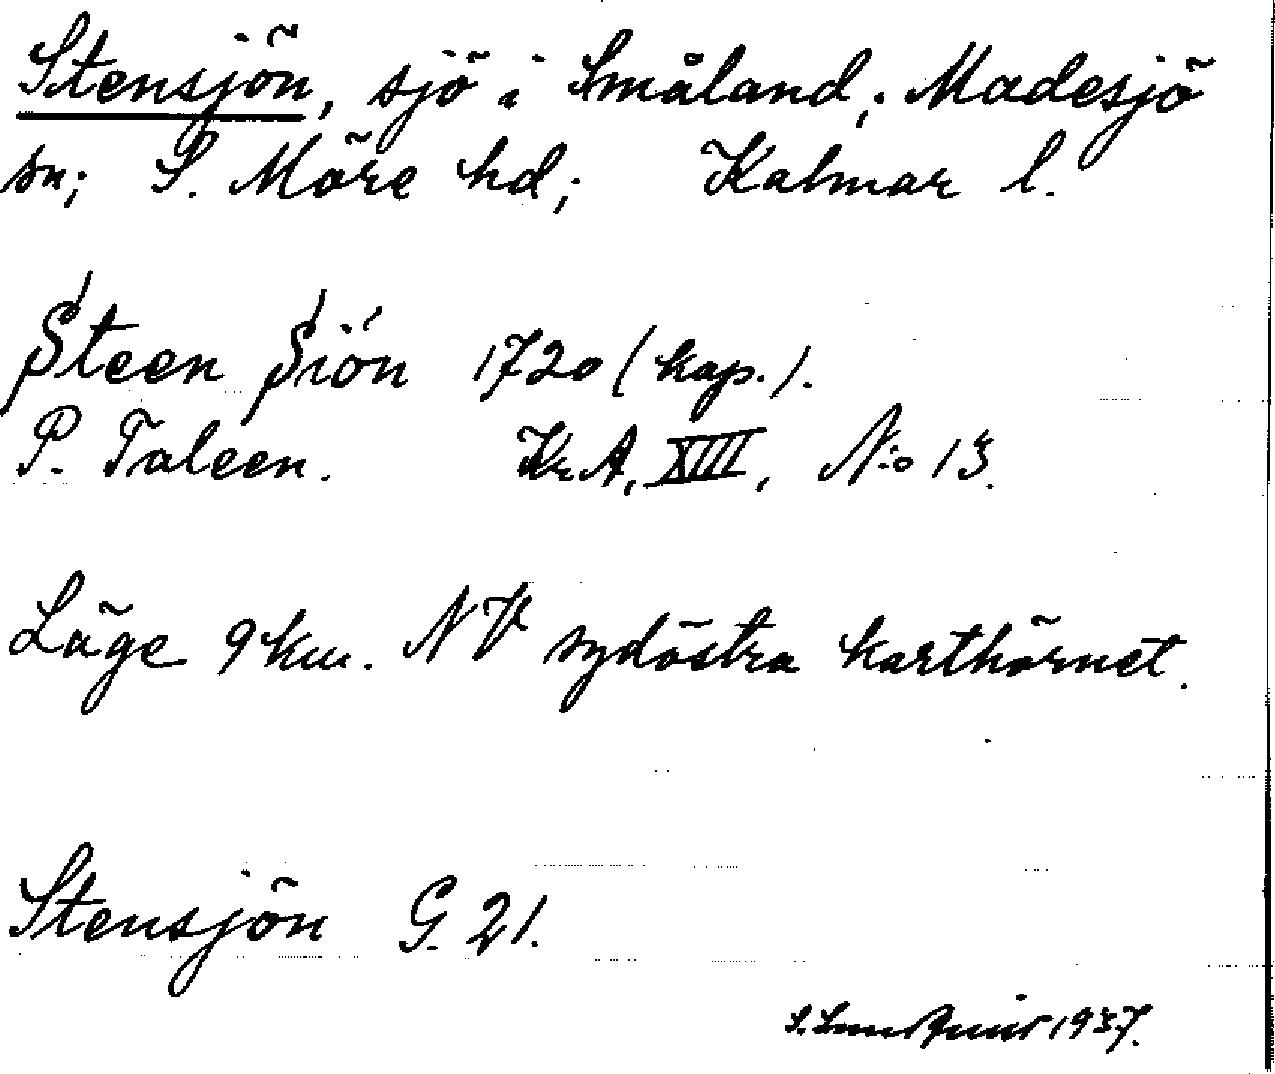 Stensjön, sjö i Småland; Madesjö
sn; S. Möre hd; Kalmar l.
Steen Siön 1720 (kop.).
P. Taleen. Kr.A. XIII, N:o 13.
Läge 9 km. NV sydöstra karthörnet.
Stensjön G. 21.
1937.